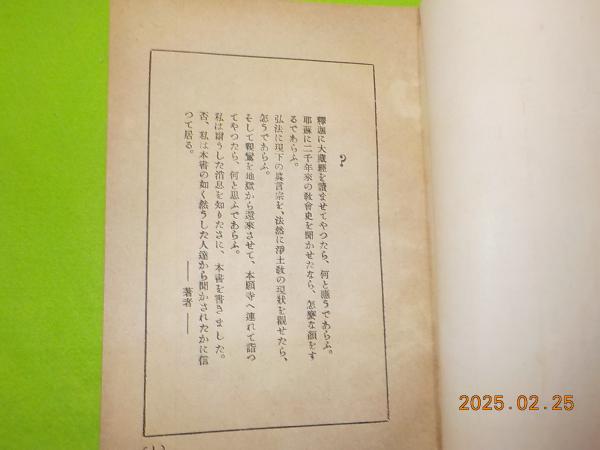 ?
釋迦に大藏經を讀ませてやつたら、何と應うであらふ。
耶蘇に二千年來の敎會史を聞かせたなら、怎麼な顏をす
るであらふ。
弘法に現下の眞言宗を、法然に淨土敎の現狀を觀せたら、
怎うであらふ。
そして親鸞を地獄から還來させて、本願寺へ連れて詣つ
てやつたら、何と思ふであらふ。
私は爾うした消息を知りたさに、本書を書きました。
否、私は本書の如く然うした人達から聞かされたかに信
つて居る。
――著者――
(1)
2025.02.25